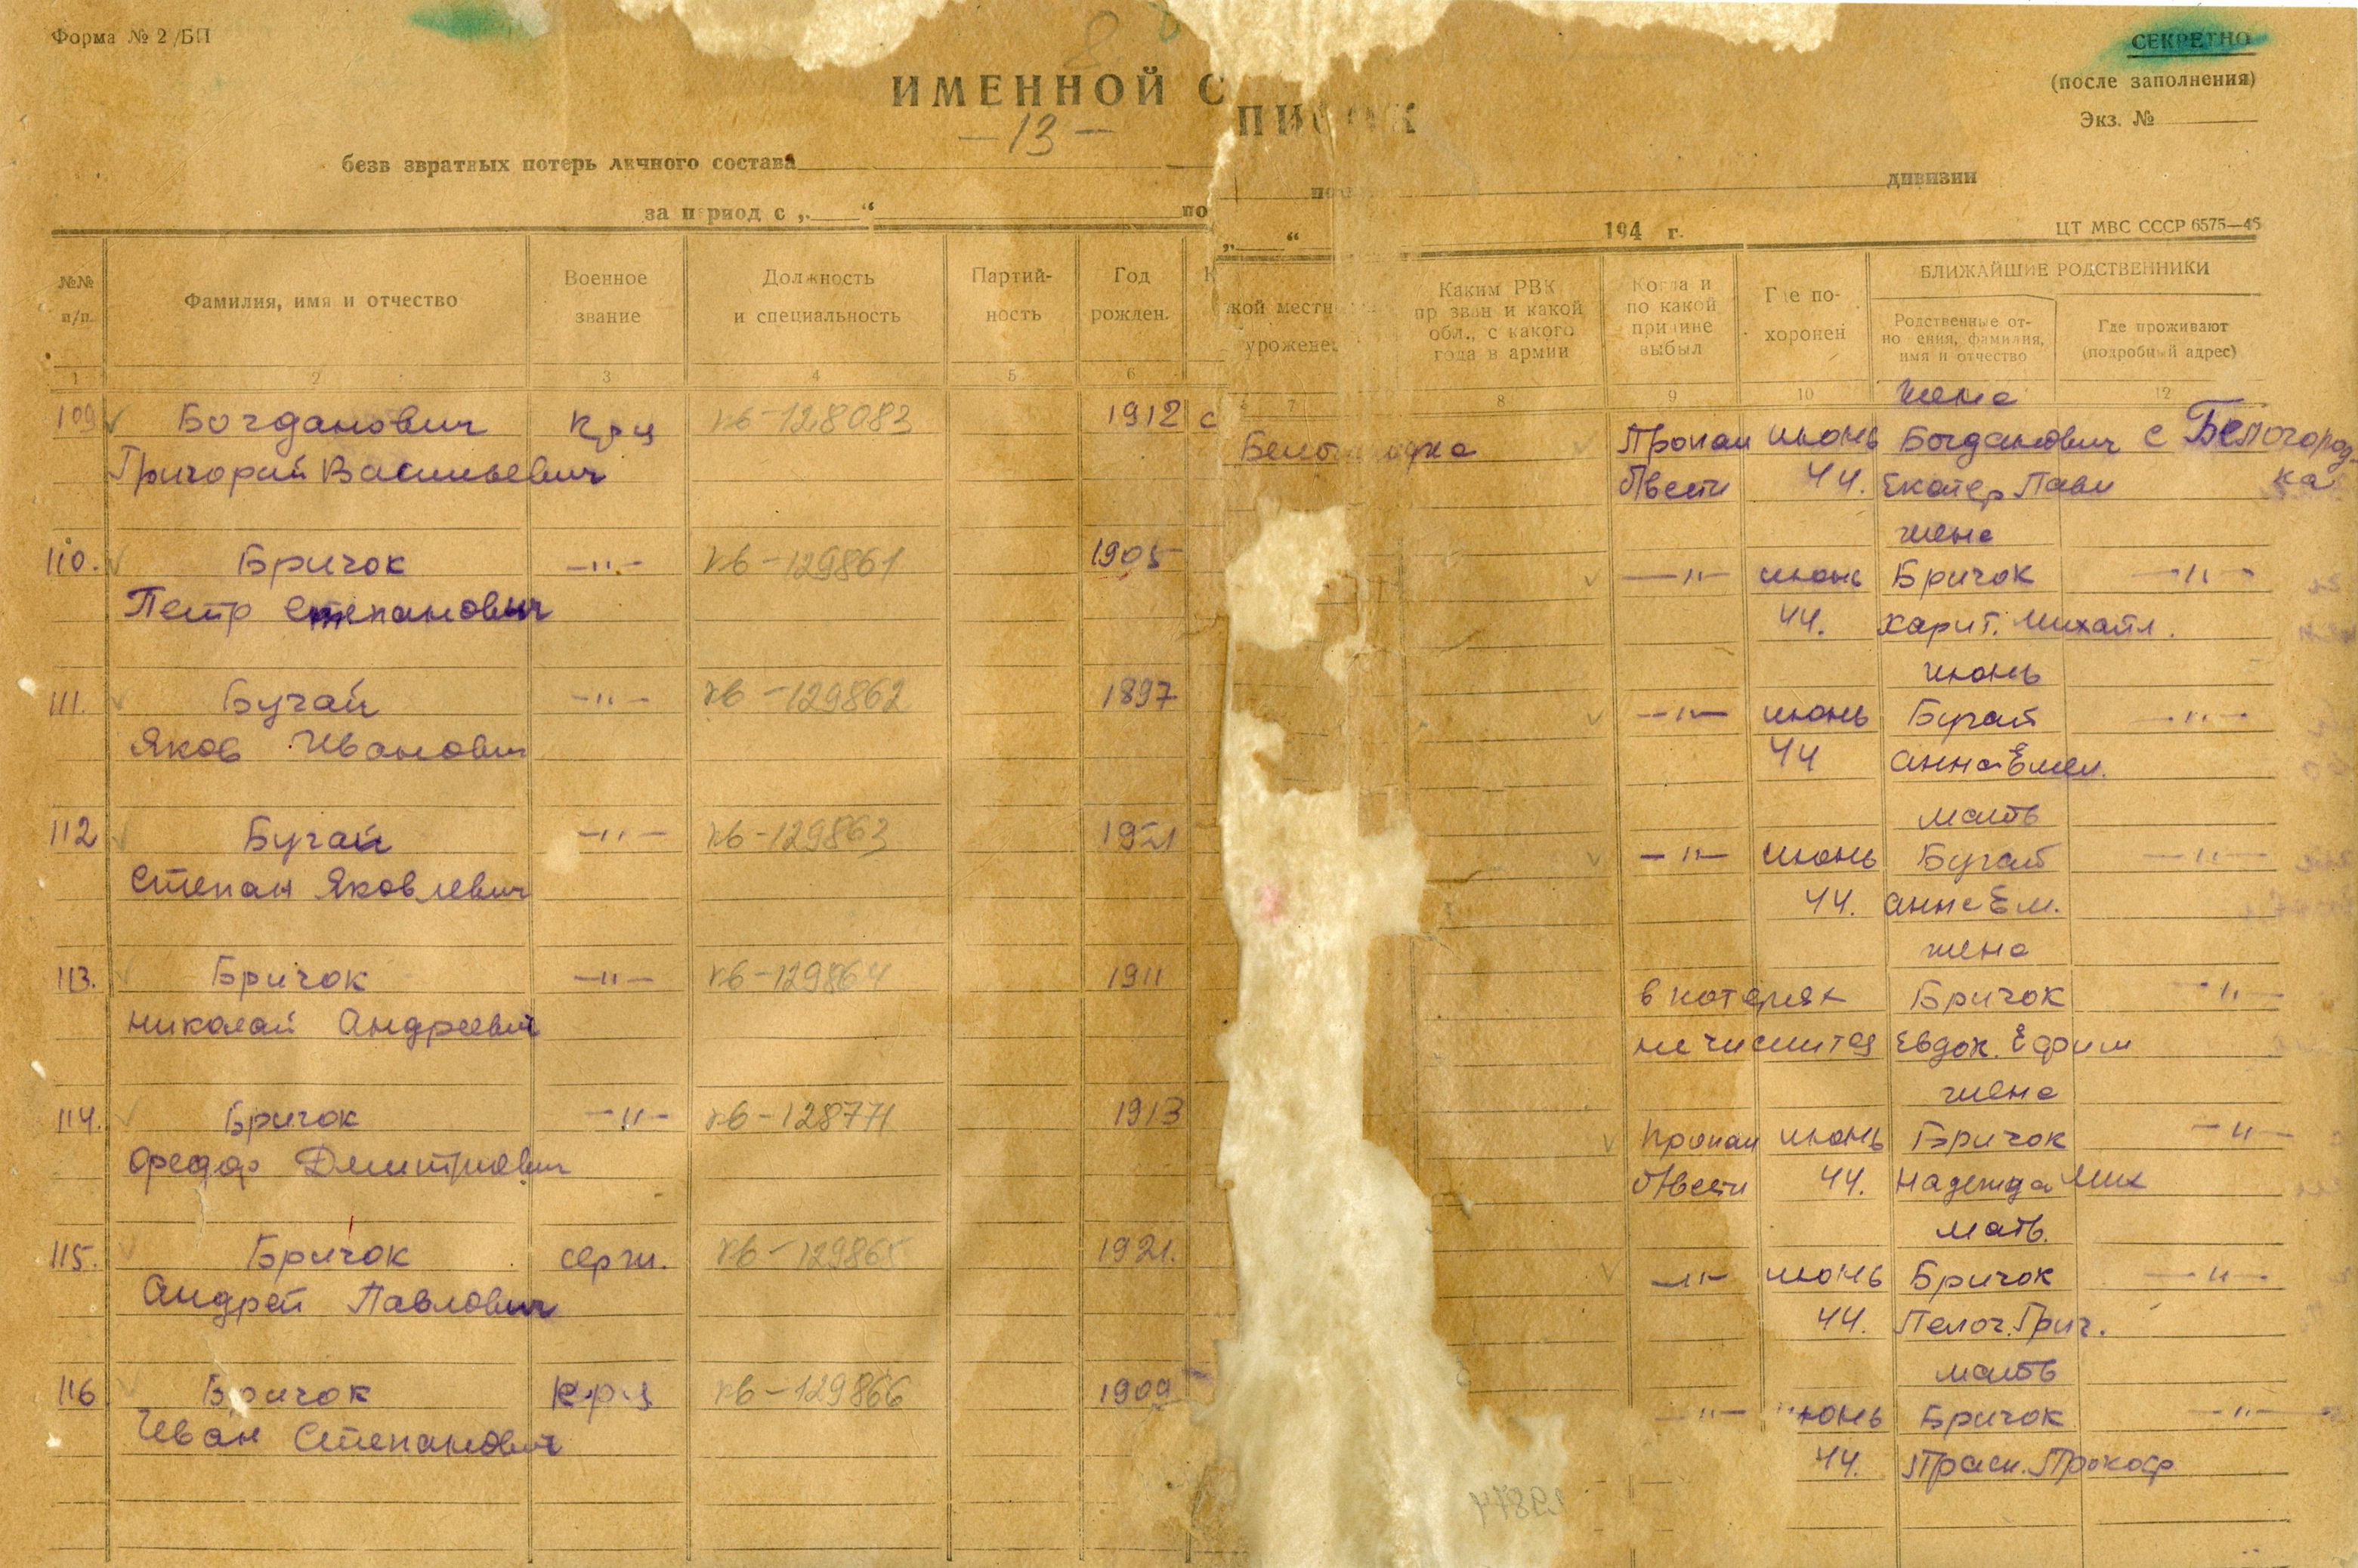 Форма № 2/БП
СЕКРЕТНО
(после заполнения)
Экз. №
ИМЕННОЙ СПИСОК
— 13 —
безв звратных потерь личного состава дивизии
за период с „ “ по „ “ 194 г.
ЦТ МВС СССР 6575—45
№№ п/п.
Фамилия, имя и отчество
Военное звание
Должность и специальность
Партий- ность
Год рожден.
кой местн урожене
Каким РВК пр зван и какой обл., с какого года в армии
Когда и по какой причине выбыл
Где по- хоронен
БЛИЖАЙШИЕ РОДСТВЕННИКИ
Родственные от- но ения, фамилия, имя и отчество
Где проживают (подробный адрес)
1 2 3 4 5 6 7 8 9 10 12
жена
109 Богданович кр-ц кв-128083 1912 с Пропал июнь Богданович с Белогород-
Григорий Васильевич б/вести 44. Екатер Павл ка
жена
110. Бричок —"— кв-129861 1905 —"— июнь Бричок —"—
Петр Степанович 44. Харит. Михайл.
июнь
111. Бугай —"— кв-129862 1897 —"— июнь Бугай —"—
Яков Иванович 44 Анна Емел.
мать
112 Бугай —"— кв-129863 1921 —"— июнь Бугай —"—
Степан Яковлевич 44. Анна Ем.
жена
113. Бричок —"— кв-129864 1911 в потерях Бричок —"—
Николай Андреевич не числится Евдок. Ефим
жена
114. Бричок —"— кв-128771 1913 пропал июнь Бричок —"—
Федор Дмитриевич б/вести 44. Надежда Мих
мать.
115. Бричок серж. кв-129865 1921. —"— июнь Бричок —"—
Андрей Павлович 44. Пелаг. Григ.
мать
116 Бричок кр-ц кв-129866 1909 —"— июнь Бричок —"—
Иван Степанович 44. Праск. Прокоф